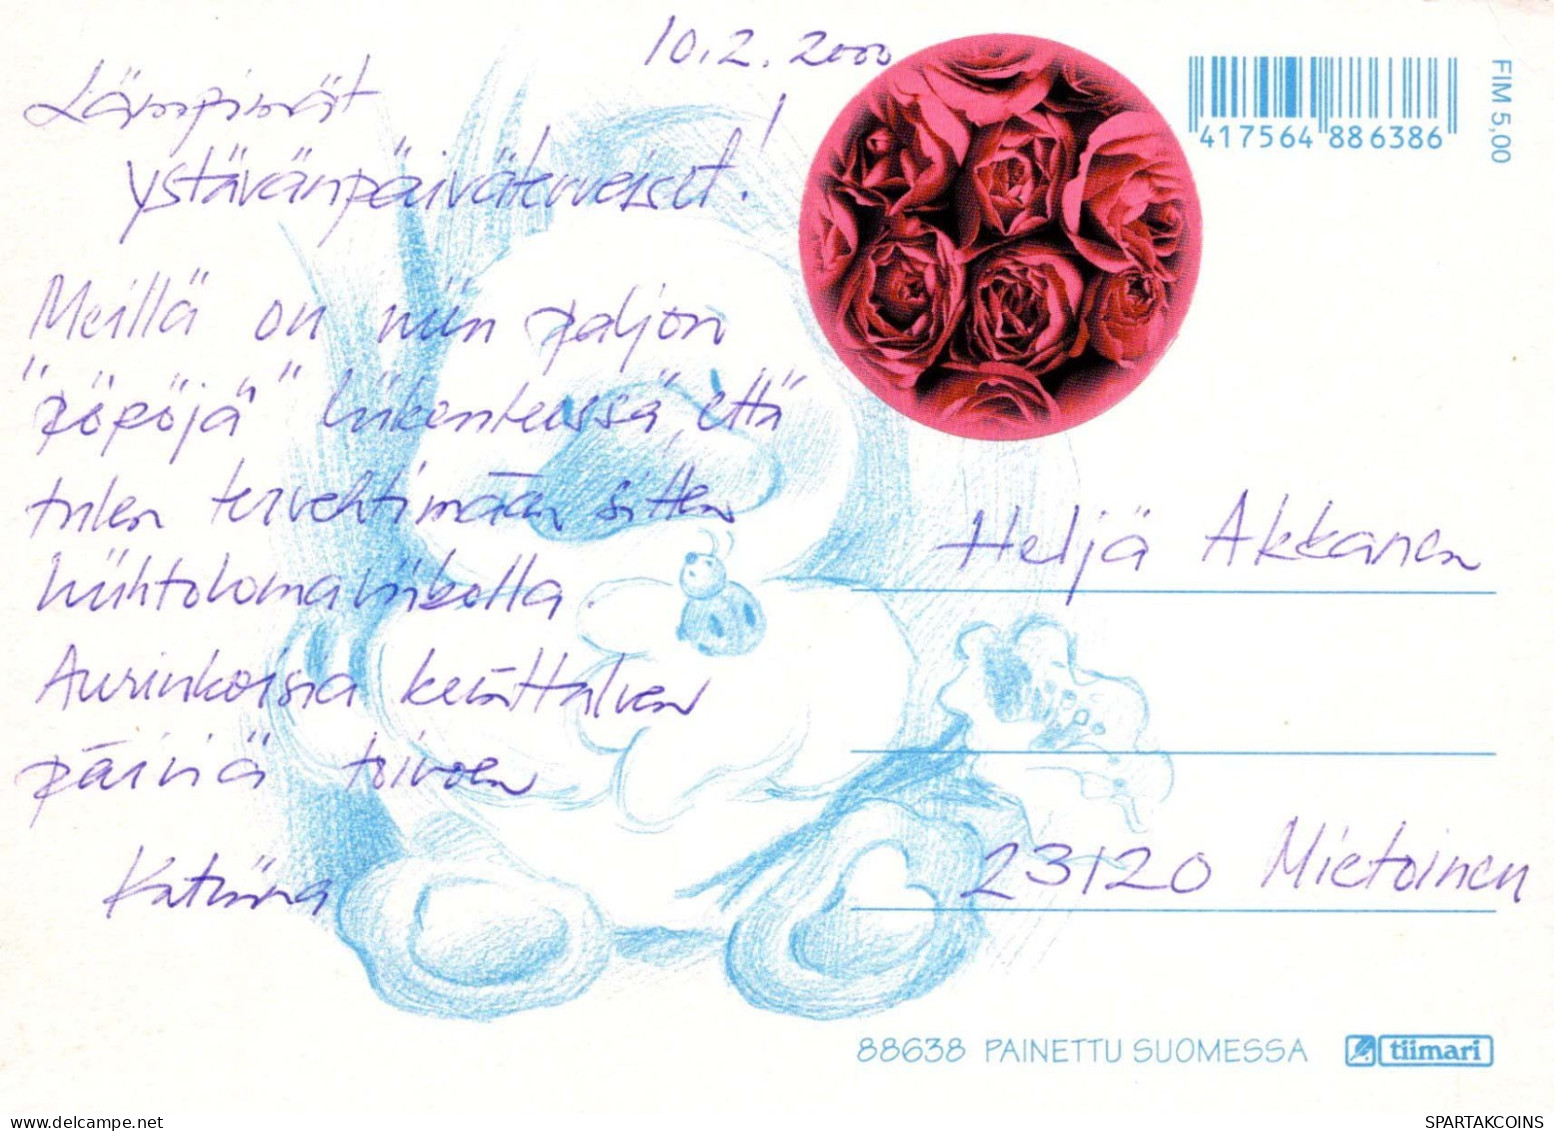 10.2.2000
Lämpimät
ystävänpäiväterveiset!
Meillä on niin paljon
"pöpöjä" liikenteessä, että
tulen tervehtimään sitten
hiihtolomaviikolla.
Aurinkoisia kevättalven
päiviä toivoen
Katriina
417564 886386
FIM 5,00
Heljä Akkanen
23120 Mietoinen
88638 PAINETTU SUOMESSA tiimari
www.delcampe.net
SPARTAKCOINS